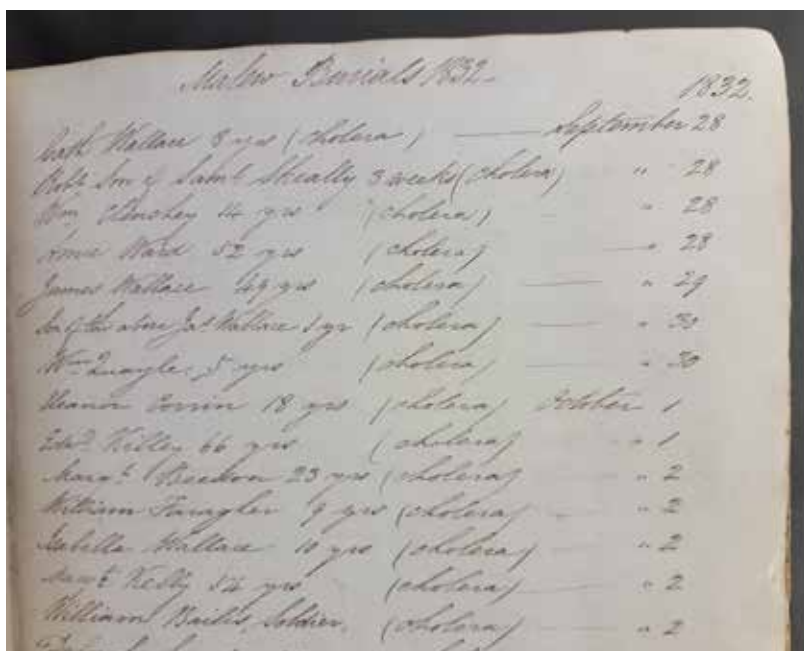 Malew Burials 1832.
1832.
Cath Wallace 8 yrs (cholera) September 28
Robt Son of Saml Skealley 3 weeks (cholera) " 28
Wm. Clenshey 14 yrs (cholera) " 28
Anne Ward 52 yrs (cholera) " 28
James Wallace 49 yrs (cholera) " 29
Son of the above Jas Wallace 1 yr (cholera) " 30
Wm Quayle 5 yrs (cholera) " 30
Eleanor Corrin 18 yrs (cholera) October 1
Edwd Killey 66 yrs (cholera) " 1
Margt 23 yrs (cholera) " 2
William 9 yrs (cholera) " 2
Isabella Wallace 10 yrs (cholera) " 2
Margt Kelly 54 yrs (cholera) " 2
William Bailis, Soldier, (cholera) " 2